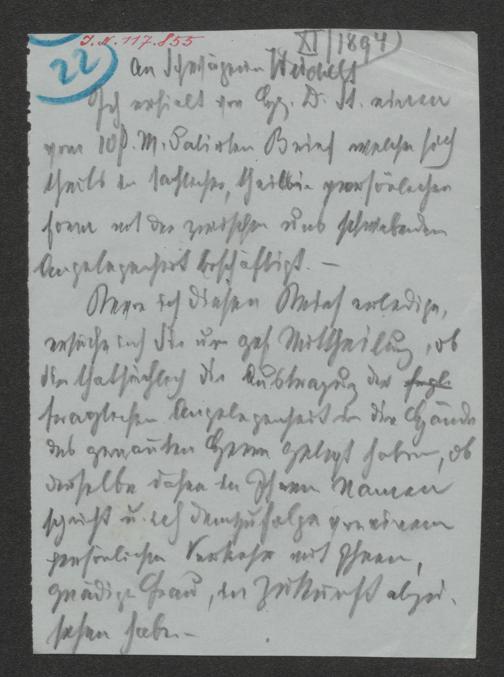 I.N. 117.855
XI/1894
22
An Schwägerin Weidels
Ich erhielt von Hr. D. St. einen
vom 10 d. M. datirten Brief welcher sich
theils in sachlicher, theils in persönlicher
Form mit der zwischen uns schwebenden
Angelegenheit beschäftigt. –
Bevor ich diesen Brief erledige,
ersuche ich Sie um gef. Mittheilung, ob
Sie thatsächlich die Austragung der
fraglichen Angelegenheit in die Hände
des genannten Herrn gelegt haben, ob
derselbe daher in Ihrem Namen
schreibt u. ich demzufolge von einem
persönlichen Verkehr mit Ihnen,
gnädige Frau, in Zukunft abzu-
sehen habe. –